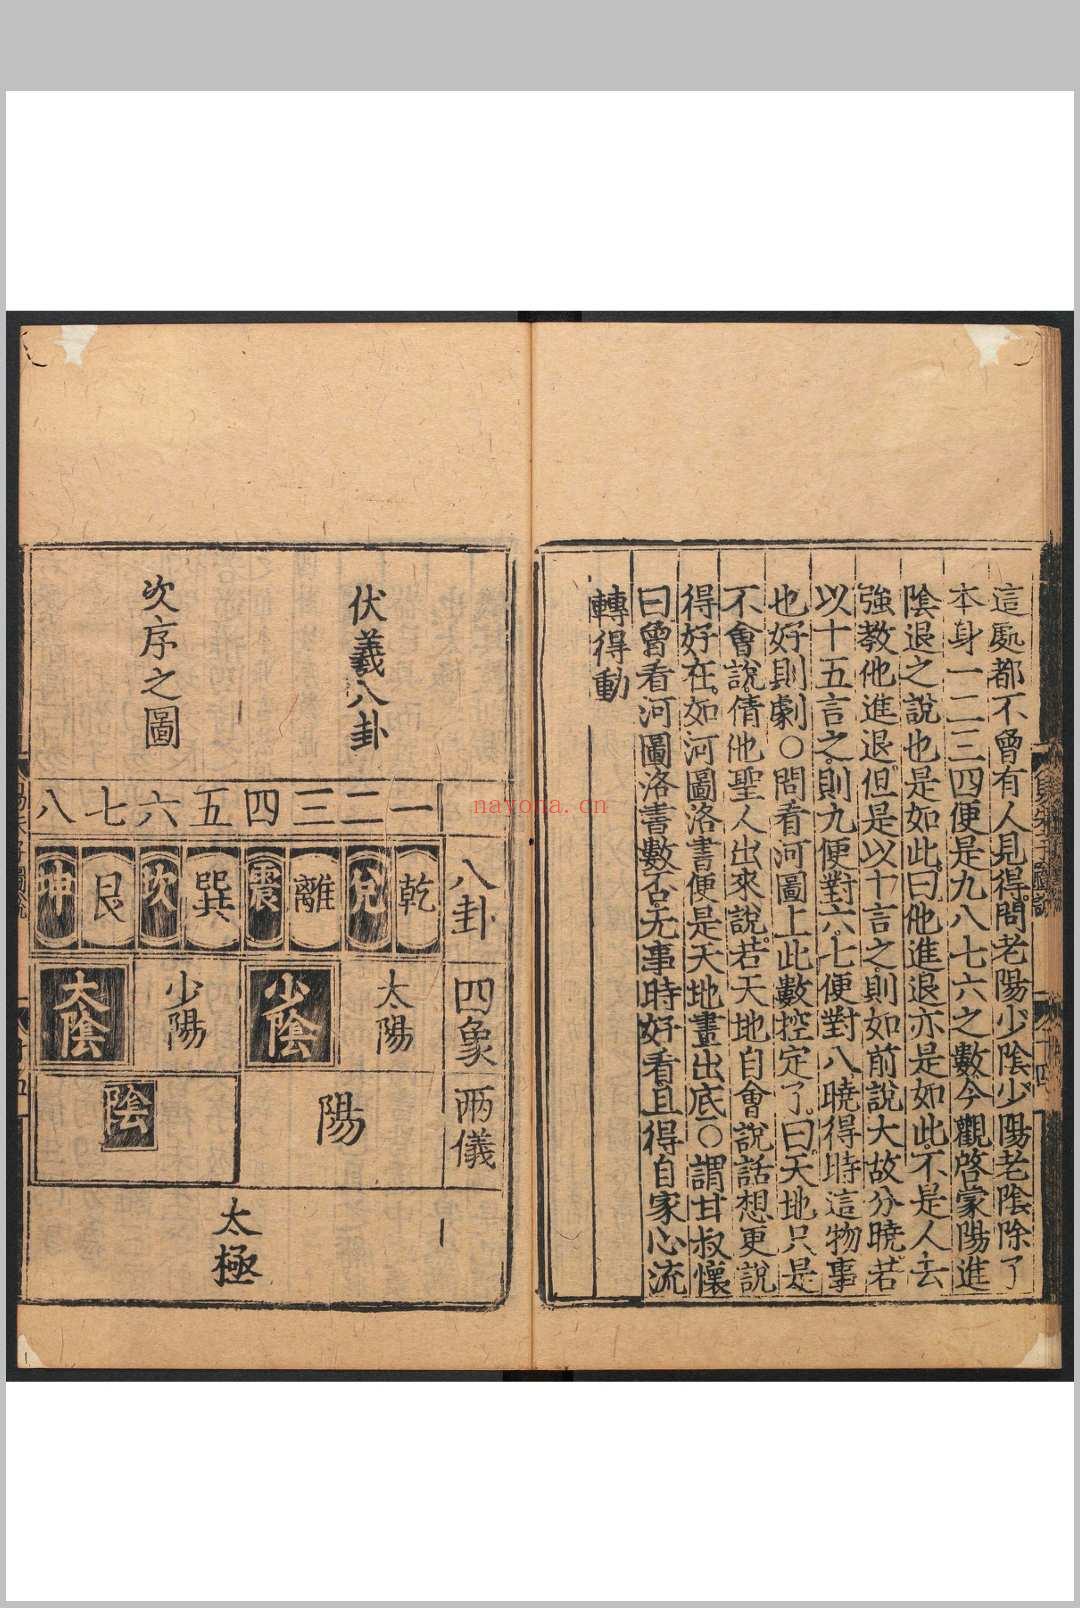 這處都不曾有人見得問老陽少陰少陽老陰除了
本身一二三四便是九八七六之數今觀啓蒙陽進
陰退之說也是如此曰他進退亦是如此不是人去
強教他進退但是以十言之則如前說大故分曉若
以十五言之則九便對六七便對八曉得時這物事
也好則劇〇問看河圖上此數控定了曰天地只是
不會說倩他聖人出來說若天地自會說話想更說
得好在如河圖洛書便是天地畫出底〇謂甘叔懷
曰曾看河圖洛書數否无事時好看且得自家心流
轉得動
伏羲八卦
次序之圖
一 二 三 四 五 六 七 八
八卦 乾 兌 離 震 巽 坎 艮 坤
四象 太陽 少陰 少陽 太陰
兩儀 陽 陰
太極
nayona.cn